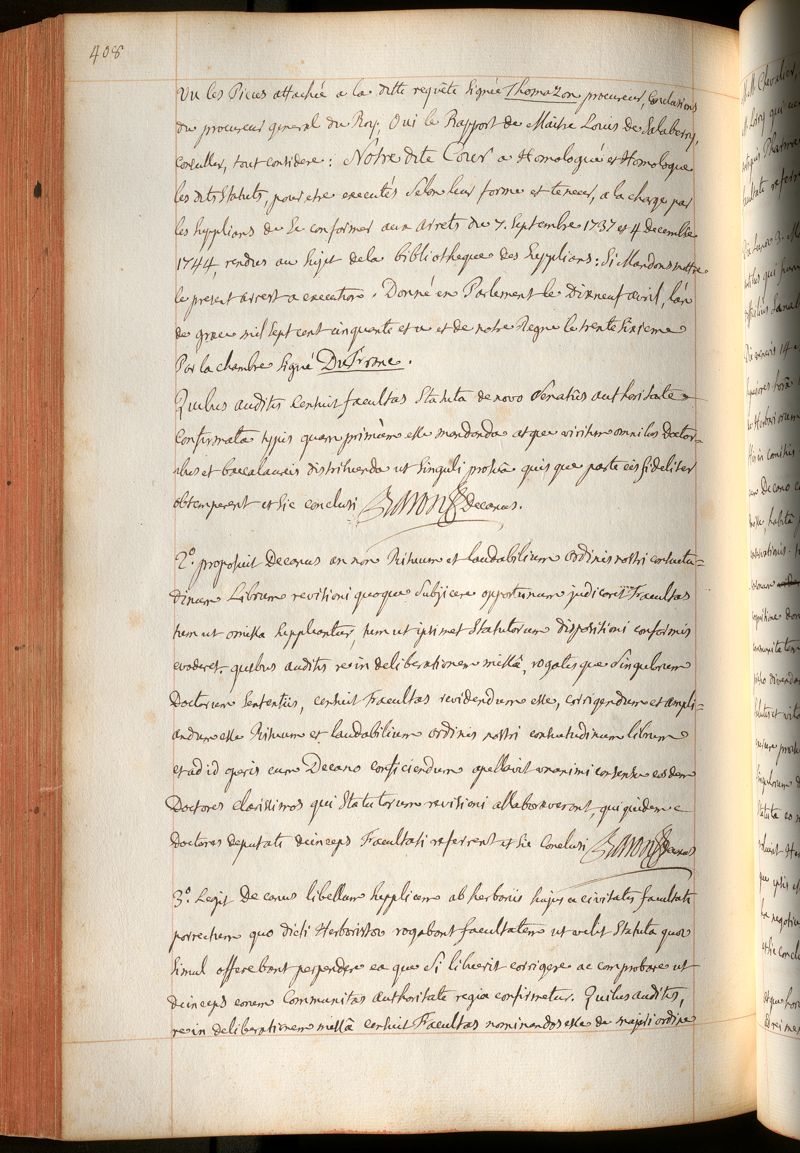 408
Vu les Pieces attachée a la ditte requête signée Thomazon procureur, Conclusions
du procureur general du Roy, Oui le Rapport de Maître Louis de Salaberry,
Conseiller, tout considere: Nôtre dite Cour a Homologué et Homologue
les dits Statuts, pour etre executés selon leur forme et teneur, a la charge par
les supplians de se conformer aux arrets du 7. Septembre 1737 et 4 decembre
1744, rendus au sujet de la bibliotheque des supplians: Si Mandons mettre
le present arrest a execution. Donné en Parlement le Dixneuf avril, l'an
de grace mil sept cent cinquante et un et de notre Regne le trente sixieme
Par la chambre signé DuFranc.
Quibus auditis censuit facultas Statuta de novo Senatûs authoritate
confirmata typis quamprimùm esse mandanda atque viritim omnibus Doctor-
ibus et baccalaureis distribuenda ut singuli pro suâ quisque parte eis fideliter
obtemperent et sic conclusi Baron Decanus.
2.º proposuit Decanus an non Rituum et laudabilium ordinis nostri consuetu-
dinum Librum revisioni quoque subjicere opportunum judicaret Facultas
tum ut omissa suppleantur, tum ut ipsimet Statutorum dispositioni conformis
evaderet. quibus auditis re in deliberationem missâ, rogatisque singulorum
Doctorum sententiis, censuit Facultas revidendum esse, corrigendum et ampli-
andum esse Rituum et laudabilium ordinis nostri consuetudinum librum
et ad id operis cum Decano conficiendum apellavit unanimi consensu eosdem
Doctores clarissimos qui Statutorum revisioni allaboraverant, qui quidem
Doctores deputati deinceps Facultati referrent et sic conclusi Baron Decanus
3.º Legit Decanus libellum supplicem ab herboriis hujusce civitatis facultati
porrectum quo dicti Herboristae rogabant facultatem ut velit Statuta quae
simul offerebant perpendere eaque si libuerit corrigere ac comprobare ut
deinceps eorum Communitas authoritate regia confirmetur. Quibus auditis,
re in deliberationem missâ censuit Facultas nominandos esse de majori ordine